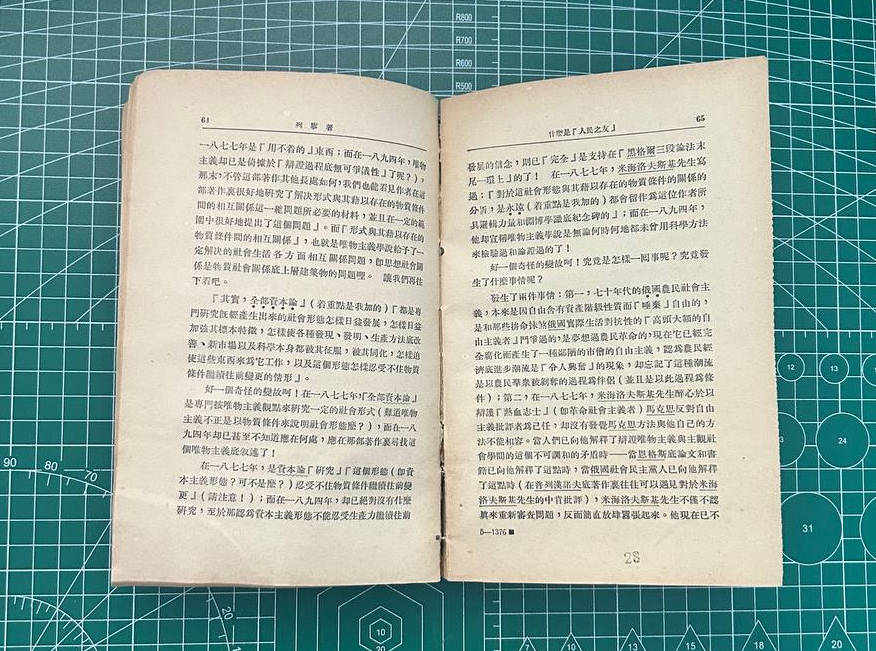 64
列寧著
一八七七年是『用不着的』東西；而在一八九四年，唯物
主義却已是倚據於『辯證過程底無可爭議性』了呢？），
那末，不管這部著作其他長處如何，我們也能看見作者在這
部著作裏很好地研究了解决形式與其藉以存在的物質條件
間的相互關係這一總問題所必要的材料，並且在一定的範
圍中很好地提出了這個問題』。而『形式與其藉以存在的
物質條件間的相互關係』，也就是唯物主義學說給予了一
定解决的社會生活各方面相互關係問題，即思想社會關
係是物質社會關係底上層建築物的問題哩。讓我們再往
下看吧。
『其實，全部資本論』（着重點是我加的）『都是專
門研究旣經產生出來的社會形態怎樣日益發展，怎樣日益
加強其標本特徵，怎樣使各種發現、發明、生產方法底改
善、新市場以及科學本身都被其征服，被其同化，怎樣迫
使這些東西來爲它工作，以及這個形態怎樣忍受不住物質
條件繼續往前變更的情形』。
好一個奇怪的變故呀！在一八七七年『全部資本論』
是專門按唯物主義觀點來研究一定的社會形式（難道唯物
主義不正是以物質條件來說明社會形態麼？），而在一八
九四年却已甚至不知道應在何處，應在那部著作裏尋找這
個唯物主義底敘述了！
在一八七七年，是資本論『研究』『這個形態（即資
本主義形態？可不是麼？）忍受不住物質條件繼續往前變
更』（請注意！）；而在一八九四年，却已絕對沒有什麼
研究，至於那認爲資本主義形態不能忍受生產力繼續往前
什麽是『人民之友』
65
發展的信念，則已『完全』是支持在『黑格爾三段論法末
尾一環上』的了！ 在一八七七年，米海洛夫斯基先生寫
過：『對於這社會形態與其藉以存在的物質條件的關係的
分析，是永遠（着重點是我加的）都會留作爲這位作者所
具邏輯力量和淵博學識底紀念碑的』；而在一八九四年，
他却宣稱唯物主義學說是無論何時何地都未曾用科學方法
來檢驗過和論證過的了！
好一個奇怪的變故呵！究竟是怎樣一囘事呢？究竟發
生了什麼事情呢？
發生了兩件事情：第一，七十年代的俄國農民社會主
義，本來是因自由含有資產階級性質而『唾棄』自由的，
是和那些拚命抹煞俄國實際生活對抗性的『高頭大額的自
由主義者』鬥爭過的，是夢想過農民革命的，現在它已經完
全腐化而產生了一種鄙陋的市儈的自由主義，認爲農民經
濟底進步潮流是『令人興奮』的現象，却忘記了這種潮流
是以農民羣衆被剝奪的過程爲伴侶（並且是以此過程爲條
件）；第二，在一八七七年，米海洛夫斯基先生醉心於以
辯護『熱血志士』（即革命社會主義者）馬克思反對自由
主義批評者爲已任，却沒有發覺馬克思方法與他自己的方
法不能相容。當人們已向他解釋了辯證唯物主義與主觀社
會學間的這個不可調和的矛盾時——當恩格斯底論文和書
籍已向他解釋了這點時，當俄國社會民主黨人已向他解釋
了這點時（在普列漢諾夫底著作裏往往可以遇見對於米海
洛夫斯基先生的中肯批評），米海洛夫斯基先生不僅不認
眞來重新審查問題，反而簡直放肆囂張起來。他現在已不
5—1376
28
R800
R700
R600
R500
90
80
70
20
10
12
13
24
31
7
10
12
15
18
20